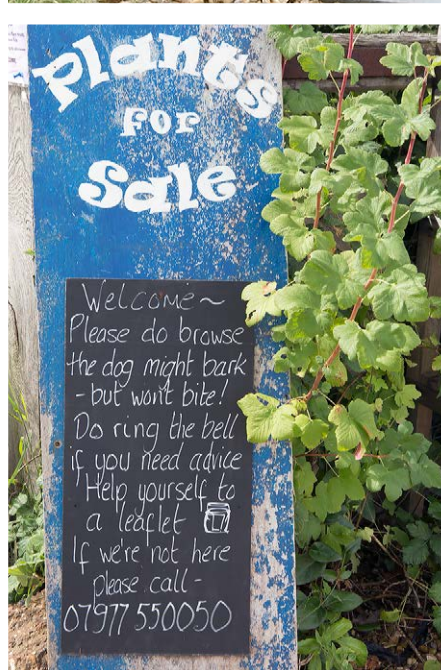 Plants
for
Sale
Welcome~
Please do browse
the dog might bark
- but won't bite!
Do ring the bell
if you need advice
Help yourself to
a leaflet
If we're not here
please call -
07977 550050